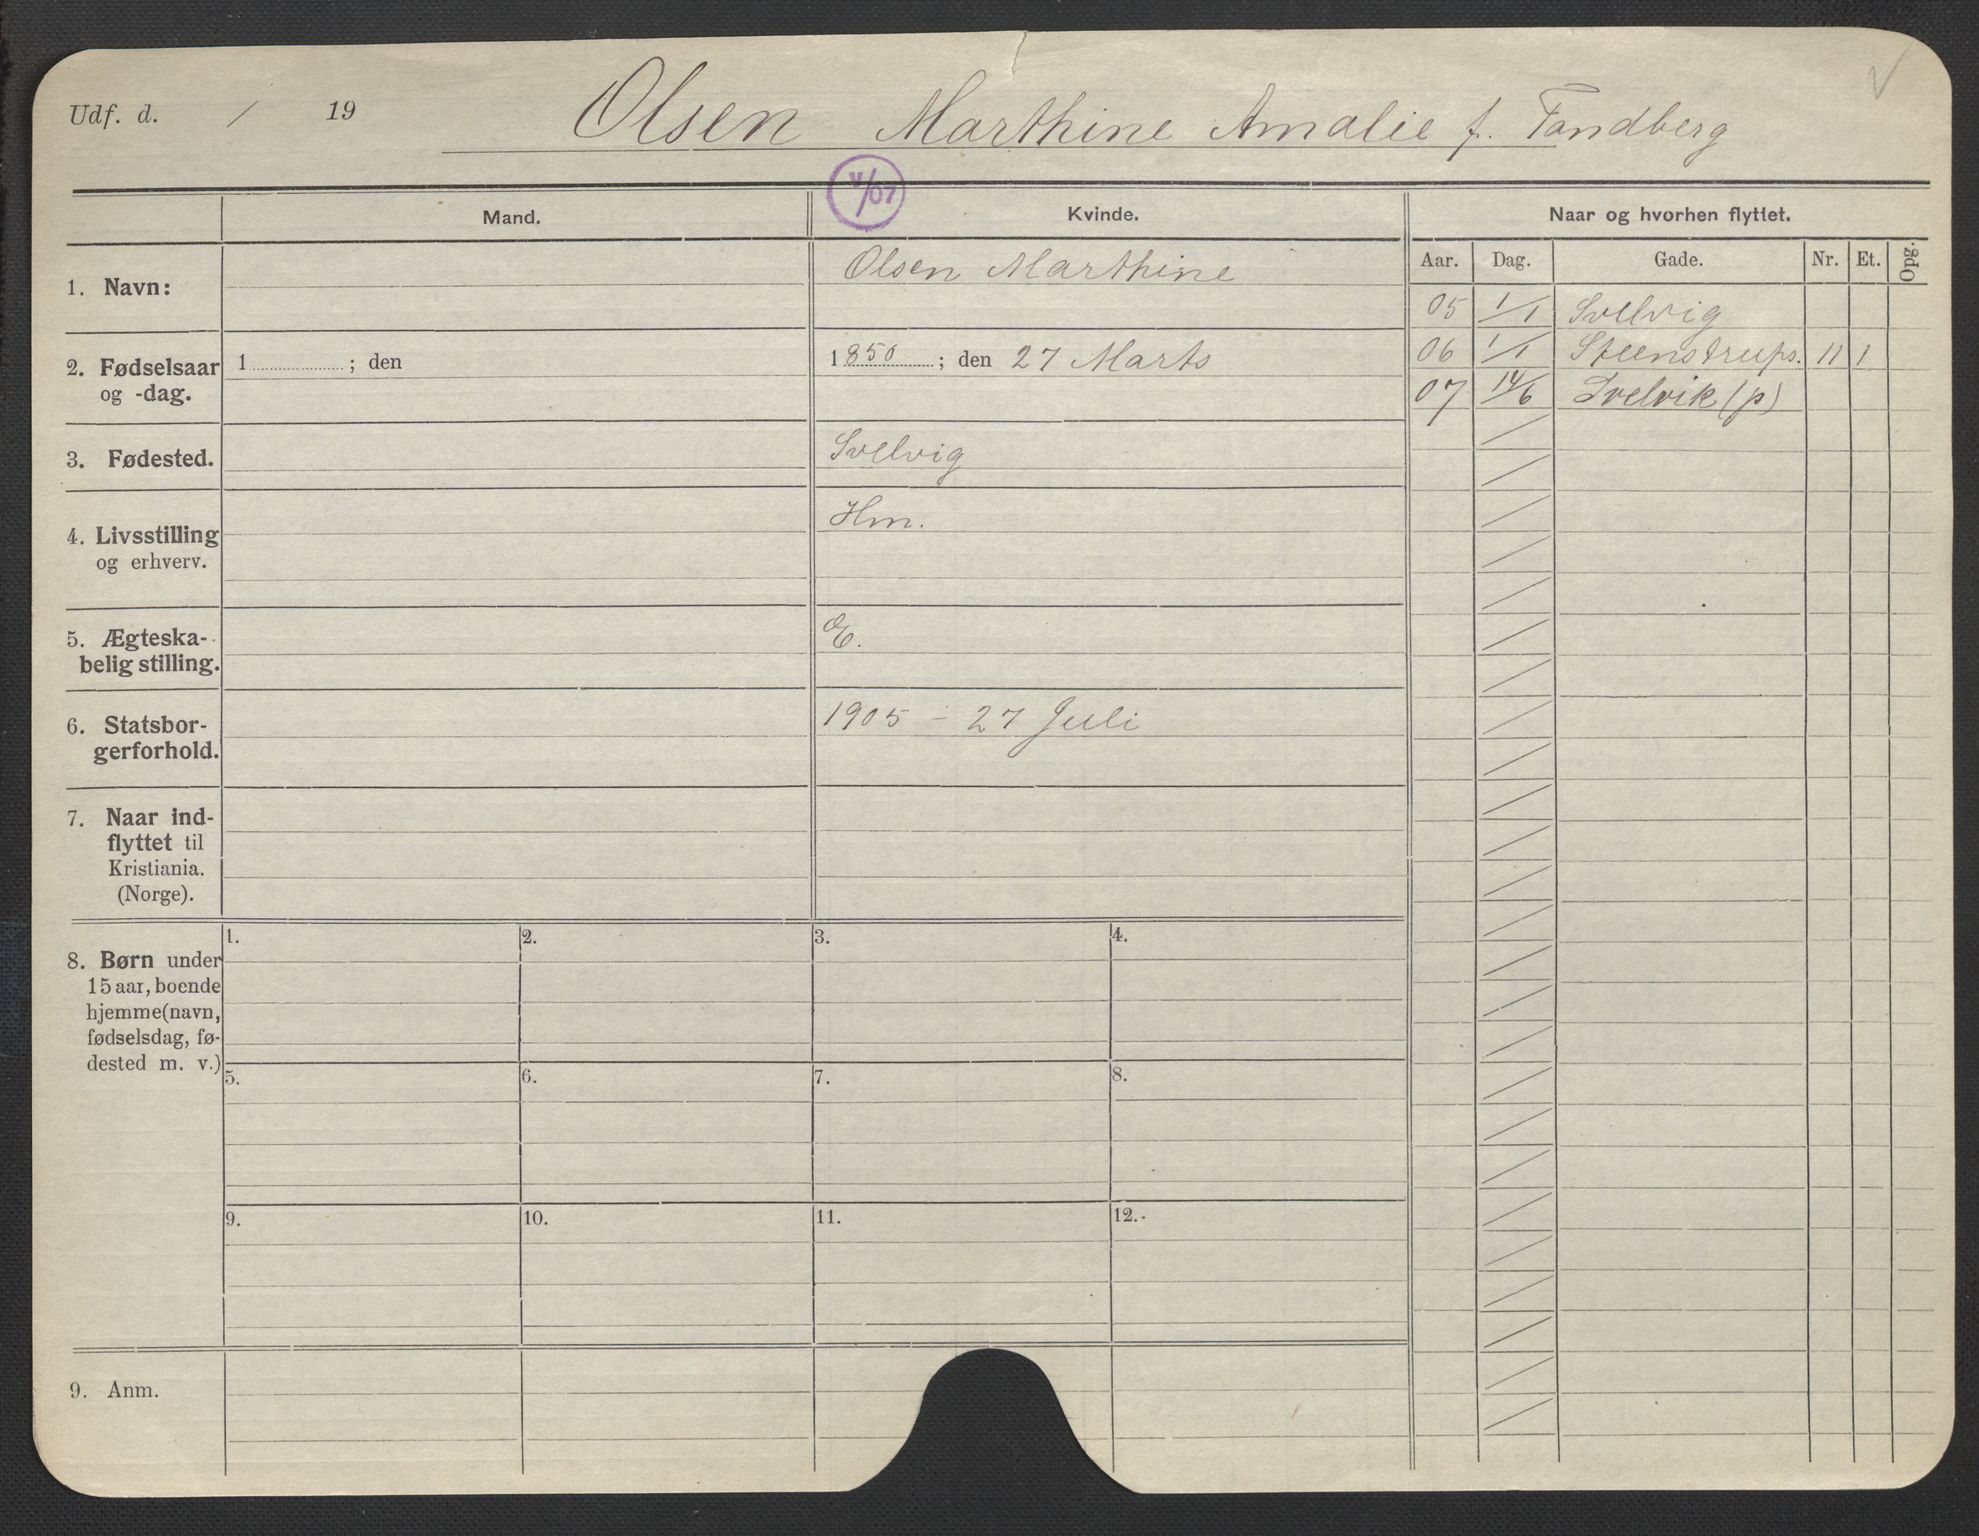 Udf. d. / 19 Olsen Marthine Amalie f. Tandberg
V/07
Mand. Kvinde. Naar og hvorhen flyttet.
Aar. Dag. Gade. Nr. Et. Opg.
1. Navn: Olsen Marthine
05 1/1 Svelvig
06 1/1 Steenstrups. 11 1
07 14/6 Svelvik (p)
2. Fødselsaar og -dag.
1 ; den
1850 ; den 27 Marts
3. Fødested. Svelvig
4. Livsstilling og erhverv.
Hm.
5. Ægteska-
belig stilling.
E.
6. Statsbor-
gerforhold.
1905 - 27 Juli
7. Naar ind-
flyttet til
Kristiania.
(Norge).
8. Børn under
15 aar, boende
hjemme (navn,
fødselsdag, fø-
dested m. v.)
1. 2. 3. 4.
5. 6. 7. 8.
9. 10. 11. 12.
9. Anm.